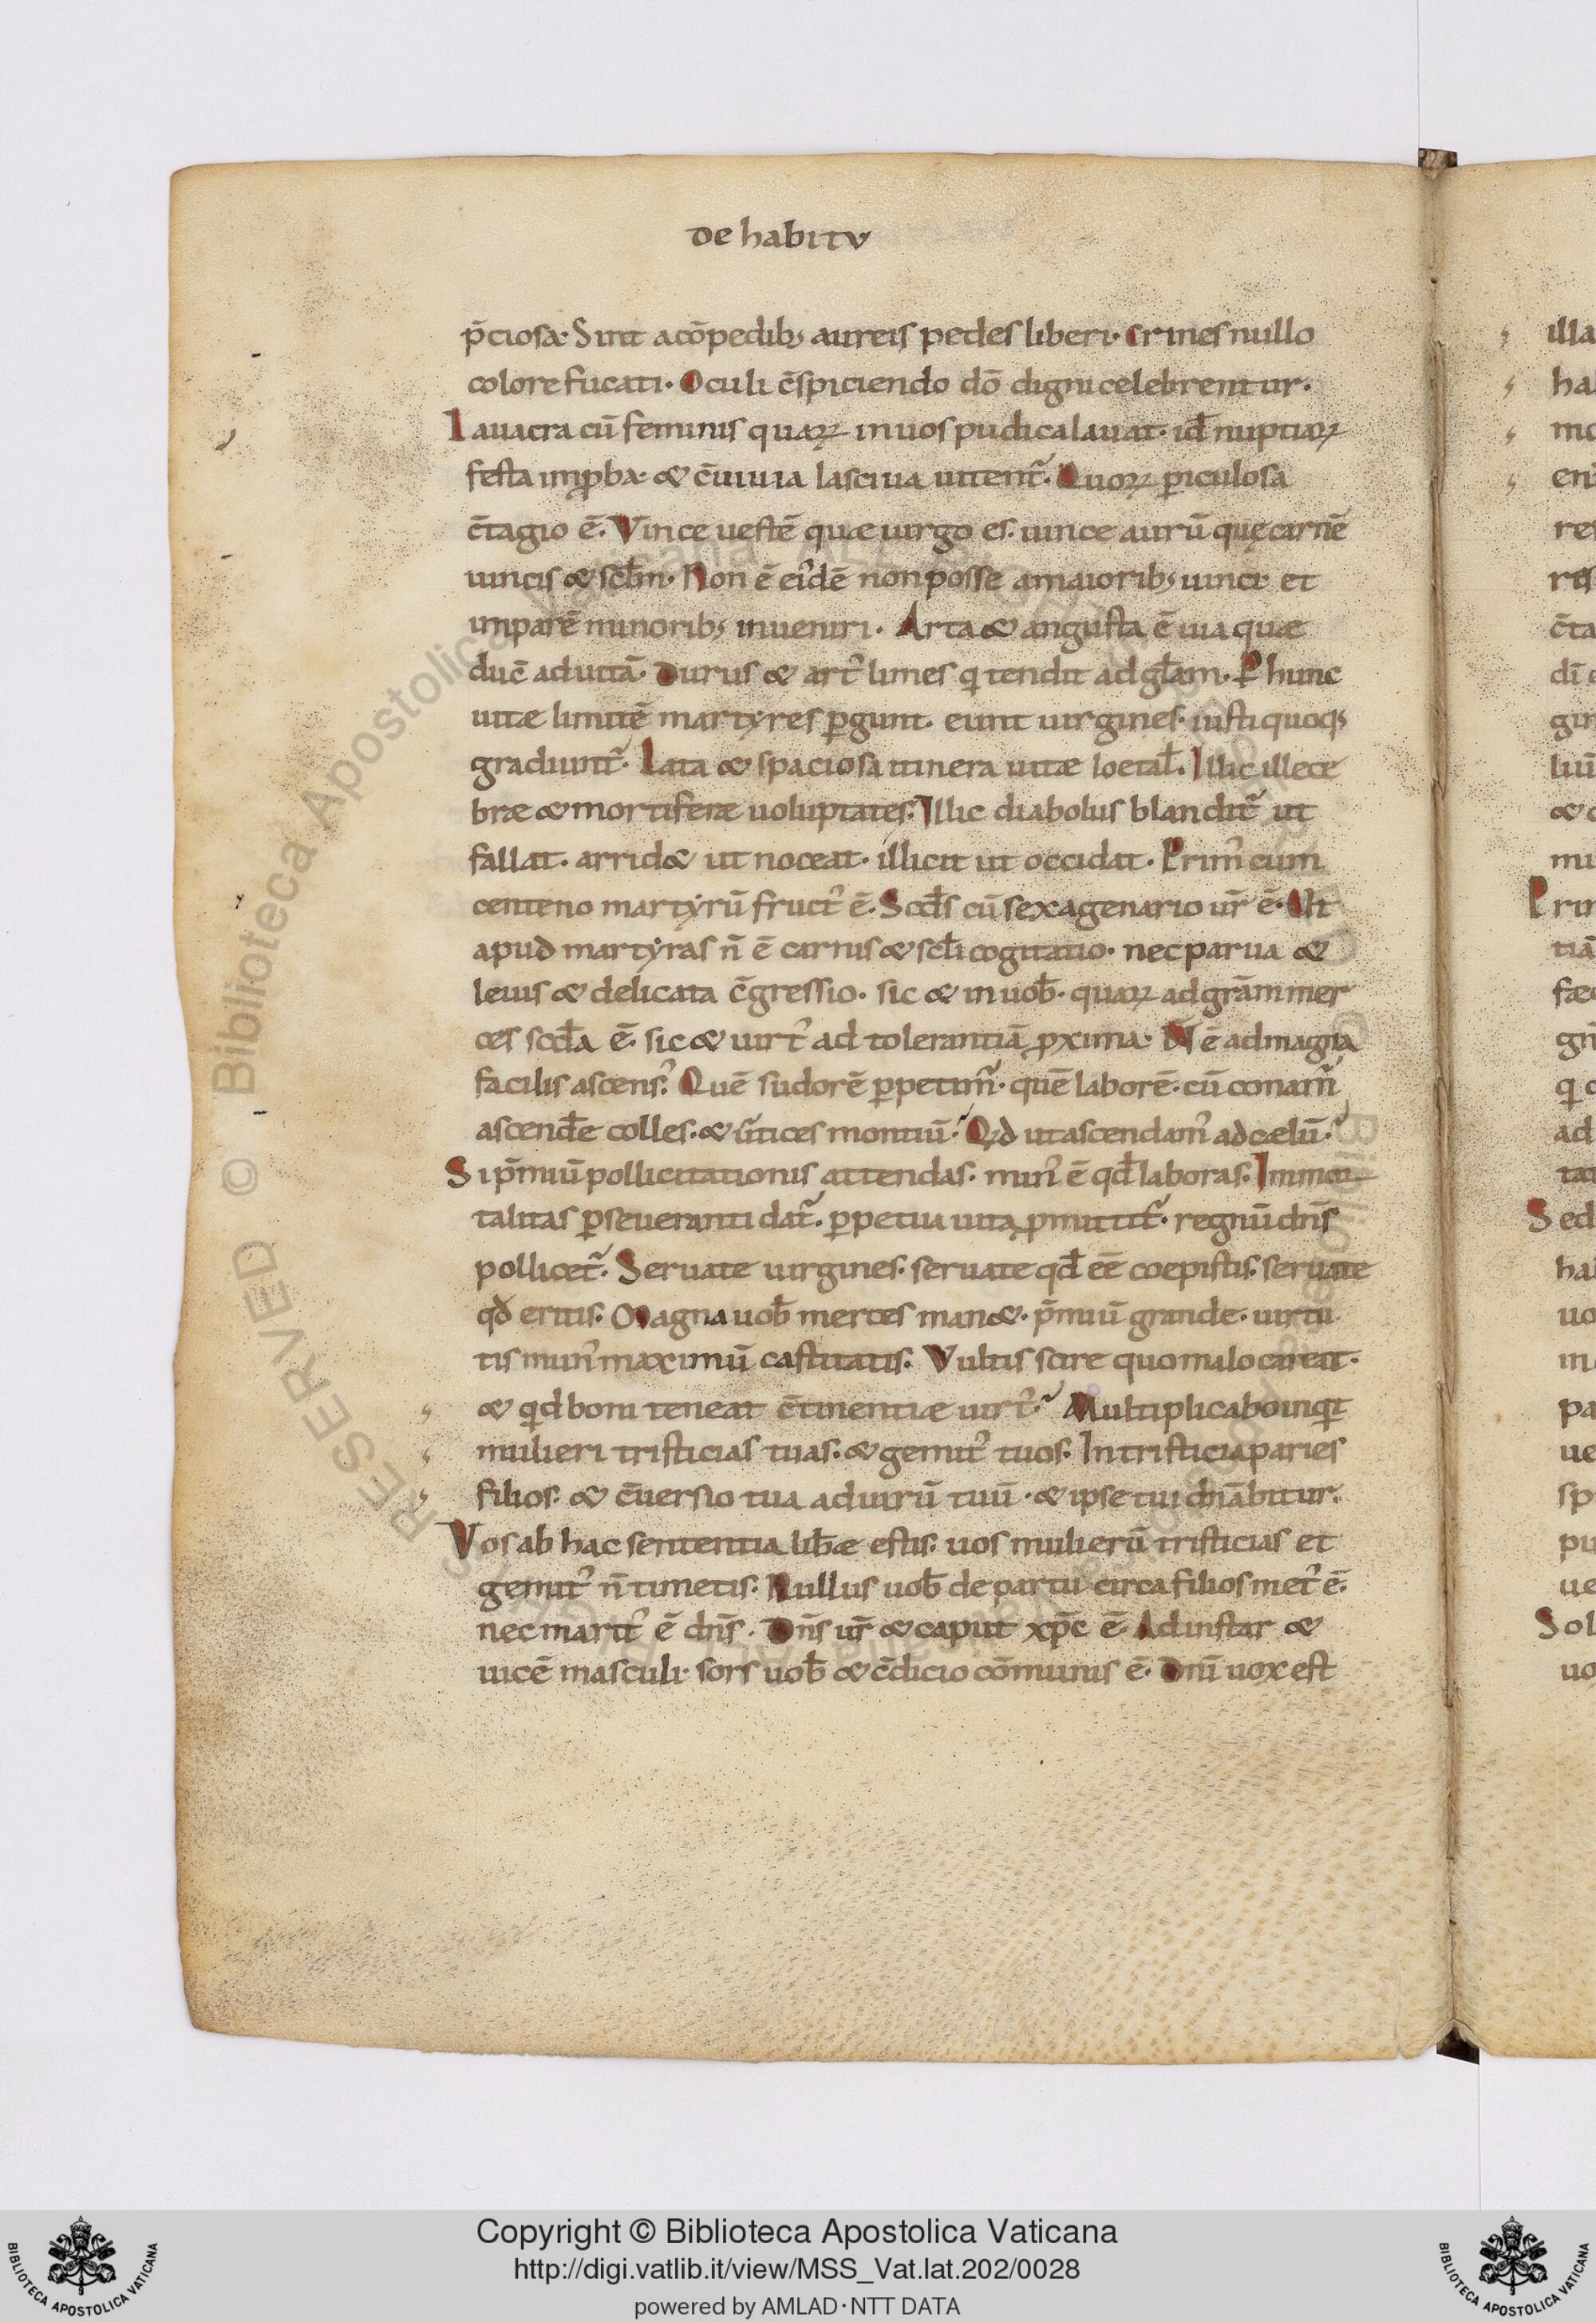 De habitv
p̄ciosa· Sint a cōpedib; aureis pedes liberi· crines nullo
colore fucati· Oculi c̄spiciendo dō digni celebrentur·
Lauacra cū feminis quaꝝ inuos pudica lauat· id̄ nuptiaꝝ
festa imꝓba· & c̄uiuia lasciua uitent᷑· Quoꝝ ꝑiculosa
c̄tagio ē· Vince uestē quae uirgo es· uince aurū quę carnē
uincis & sc̄lm· Non ē ei᷒dē non posse a maiorib; uinci· et
imparē minorib; inueniri· Arta & angusta ē uia quae
duc̄ ad uitā· Durus & art᷒ limes q̇ tendit ad gl̄am· Ꝑ hunc
uitae limitē martyres ꝑgunt· eunt uirgines· iusti quoq;
gradiunt᷑· Lata & spaciosa itinera uitae loetal̄· Illic illece
brae & mortiferae uoluptates· Illic diabolus blandit᷑ ut
fallat· arrid& ut noceat· illicit ut occidat· Prim᷒ cum
centeno martyrū fruct᷒ ē· Scd̄s cū sexagenario ur̄ ē· Ut
apud martyras n̄ ē carnis & scl̄i cogitatio· nec parua &
leuis & delicata c̄gressio· sic & in uob̄· quaꝝ ad gr̄am mer
ces scd̄a ē· sic & uirt᷒ ad tolerantiā ꝓxima· N̄ ē ad magna
facilis ascens᷒· Quē sudorē ꝑpetim᷑· quē laborē· cū conam᷑
ascend̄e colles· & ūtices montiū· Qd ut ascendam᷒ ad caelū·
Si p̄miū pollicitationis attendas· min᷒ ē qd̄ laboras· Immor
talitas ꝑseueranti dat᷑· ꝑpetua uita ꝓmittit᷑· regnū dn̄s
pollicet᷑· Seruate uirgines· seruate qd̄ eē coepistis· seruate
qd̄ eritis· Magna uob̄ merces man&· p̄miū grande· uirtu
tis mun᷒ maximū castitatis· Vultis scire quo malo careat·
& qd boni teneat c̄tinentiae uirt᷒· Multiplicabo inqt
mulieri tristicias tuas· & gemit᷒ tuos· In tristicia paries
filios· & c̄uersio tua ad uirū tuū· & ipse tui dn̄abitur·
Vos ab hac sententia lib̄ae estis· uos mulierū tristicias et
gemit᷒ n̄ timetis· Nullus uob̄ de partu circa filios met᷒ ē·
nec marit᷒ ē dn̄s· Dn̄s ur̄ & caput xp̄c ē· Ad instar &
uicē masculi· sors uob̄ & c̄dicio cōmunis ē· Dn̄i uox est
Copyright © Biblioteca Apostolica Vaticana
http://digi.vatlib.it/view/MSS_Vat.lat.202/0028
powered by AMLAD·NTT DATA
BIBLIOTECA APOSTOLICA VATICANA
BIBLIOTECA APOSTOLICA VATICANA